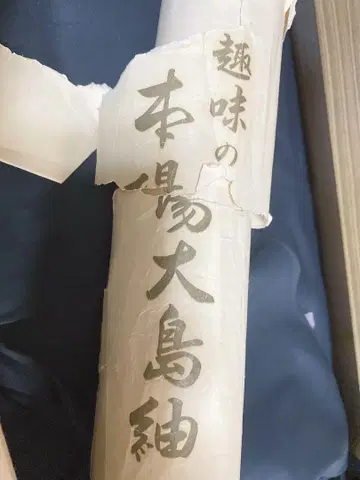 趣味の
本場大島紬